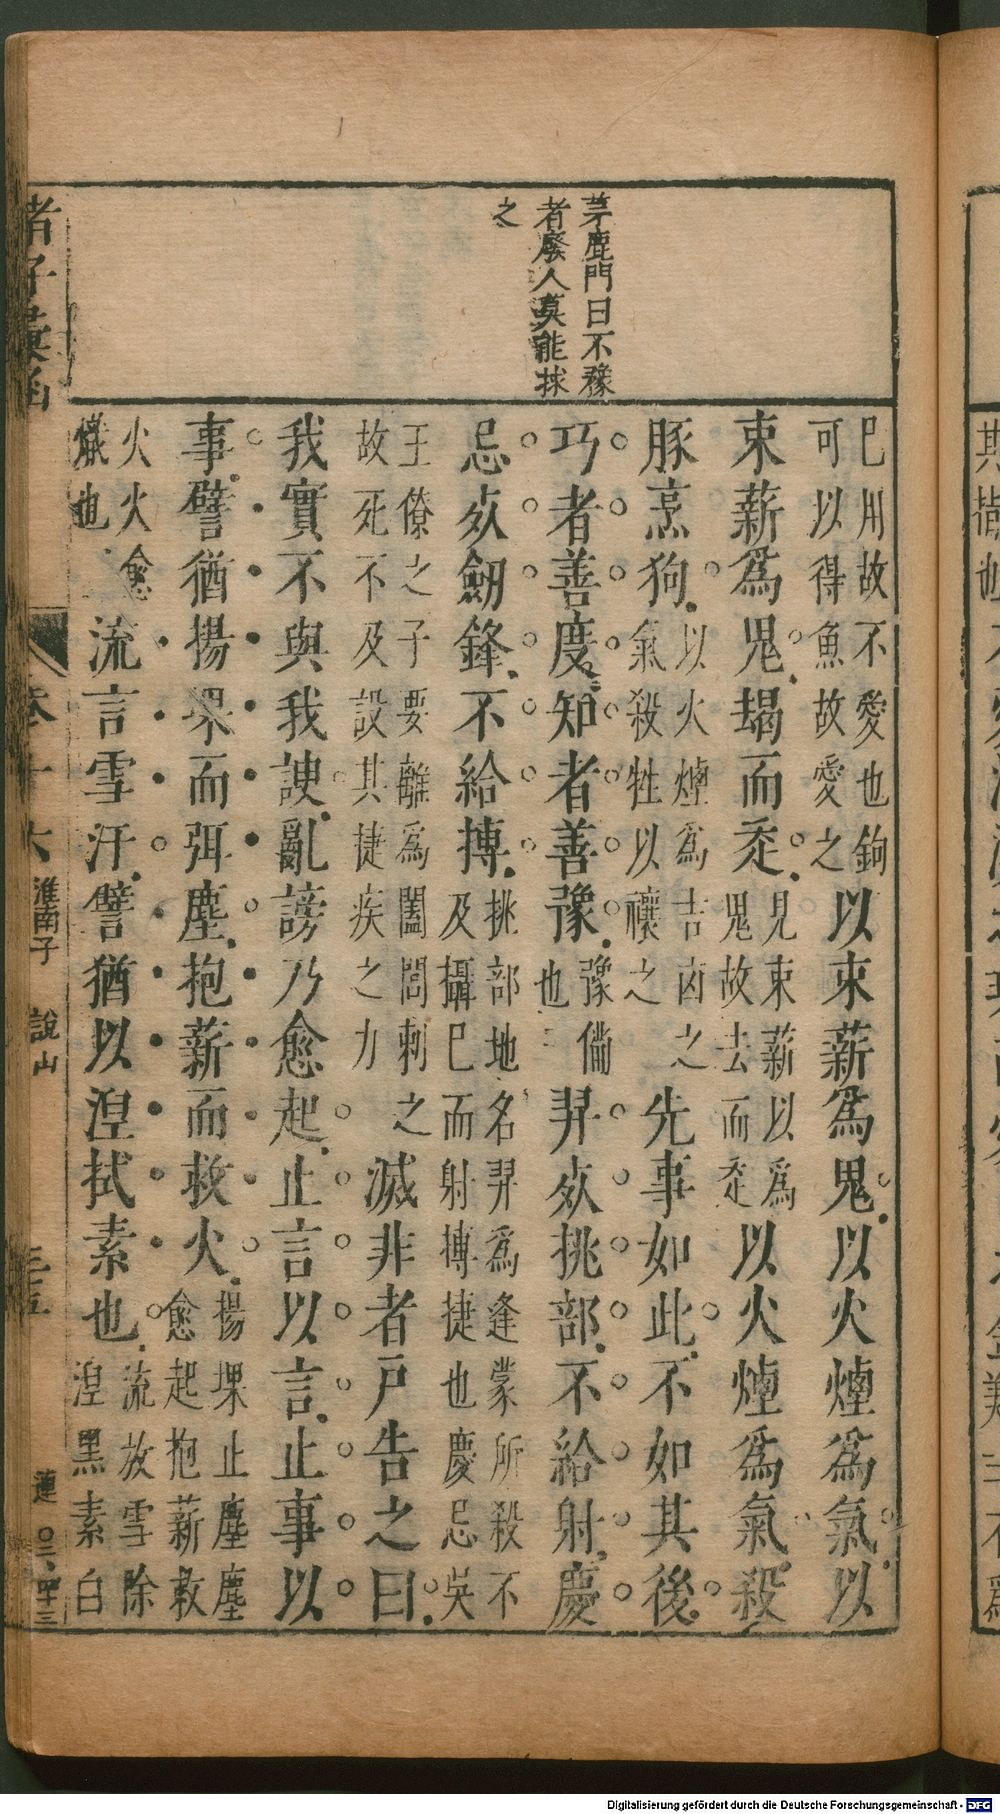 茅鹿門曰不豫
者廢人莫能捄
之
巳用故不愛也鉤
可以得魚故愛之
以束薪爲鬼以火煙爲氣以
束薪爲鬼朅而走
見束薪以爲
鬼故去而走
以火煙爲氣殺
豚烹狗
以火煙爲吉凶之
氣殺牲以禳之
先事如此不如其後
巧者善度知者善豫
豫備
也
羿死桃部不給射慶
忌死劒鋒不給搏
桃部地名羿爲逢蒙所殺不
及攝巳而射搏捷也慶忌吳
王僚之子要離爲闔閭刺之
故死不及設其捷疾之力
滅非者戸告之曰
我實不與我諛亂謗乃愈起止言以言止事以
事譬猶揚堁而弭塵抱薪而救火
揚堁止塵塵
愈起抱薪救
火火愈
熾也
流言雪汙譬猶以湼拭素也
流放雪除
湼黑素白
者子彙函
卷十六
淮南子
說山
三五
蓮